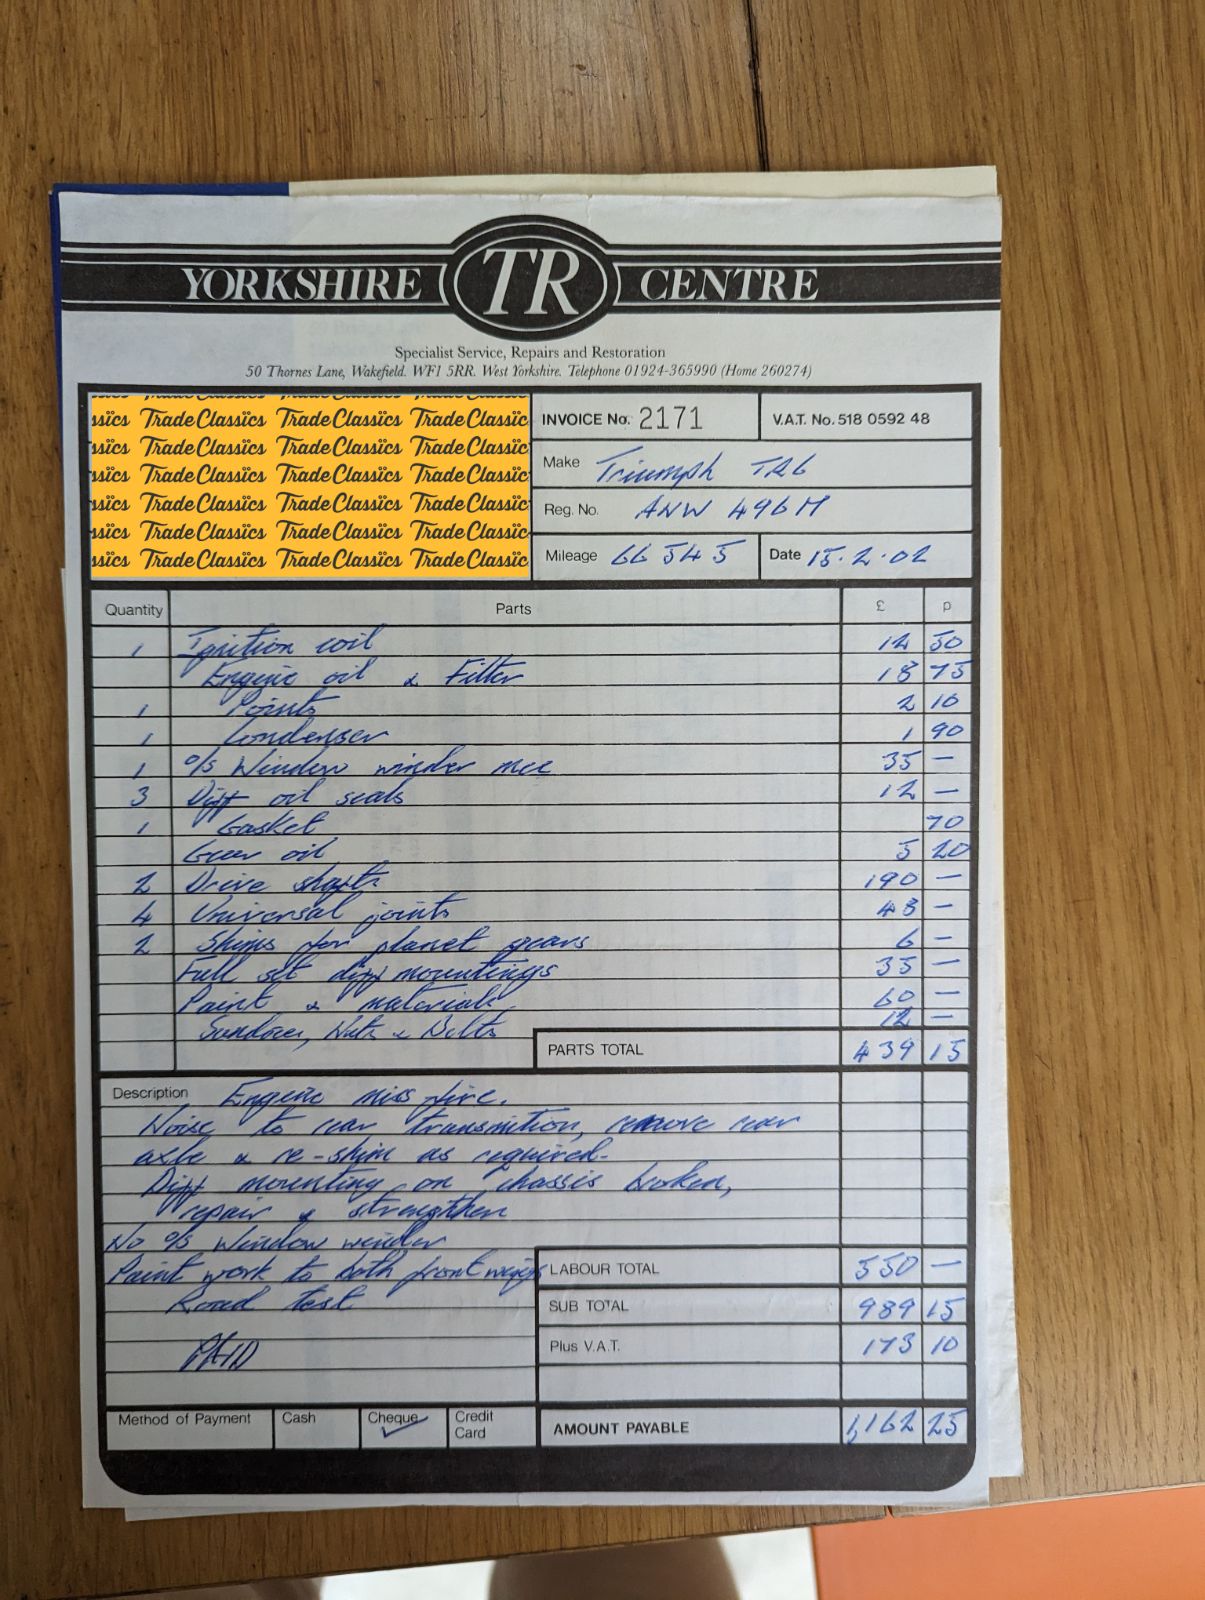 YORKSHIRE TR CENTRE
Specialist Service, Repairs and Restoration
50 Thornes Lane, Wakefield. WF1 5RR. West Yorkshire. Telephone 01924-365990 (Home 260274)
ssics TradeClassics TradeClassics TradeClassic
ssics TradeClassics TradeClassics TradeClassic
ssics TradeClassics TradeClassics TradeClassic
ssics TradeClassics TradeClassics TradeClassic
ssics TradeClassics TradeClassics TradeClassic
ssics TradeClassics TradeClassics TradeClassic
INVOICE No. 2171 V.A.T. No. 518 0592 48
Make Triumph TR6
Reg. No. ANW 496M
Mileage 66545 Date 15.2.02
Quantity Parts £ p
1 Ignition coil 14 50
Engine oil & Filter 18 75
1 Points 2 10
1 Condenser 1 90
1 o/s Window winder mec 35 —
3 Diff oil seals 12 —
1 Gasket 70
Gear oil 5 20
2 Drive shafts 190 —
4 Universal joints 48 —
2 Shims for planet gears 6 —
Full set diff mountings 35 —
Paint & materials 60 —
Sundries, Nuts & Bolts 12 —
PARTS TOTAL 439 15
Description Engine miss fire.
Noise to rear transmition, remove rear
axle & re-shim as required.
Diff mounting on chassis broken,
repair & strengthen
No o/s Window winder
Paint work to both front wings
LABOUR TOTAL 550 —
Road test
SUB TOTAL 989 15
Plus V.A.T. 173 10
PAID
Method of Payment Cash Cheque ✓ Credit Card
AMOUNT PAYABLE 1,162 25